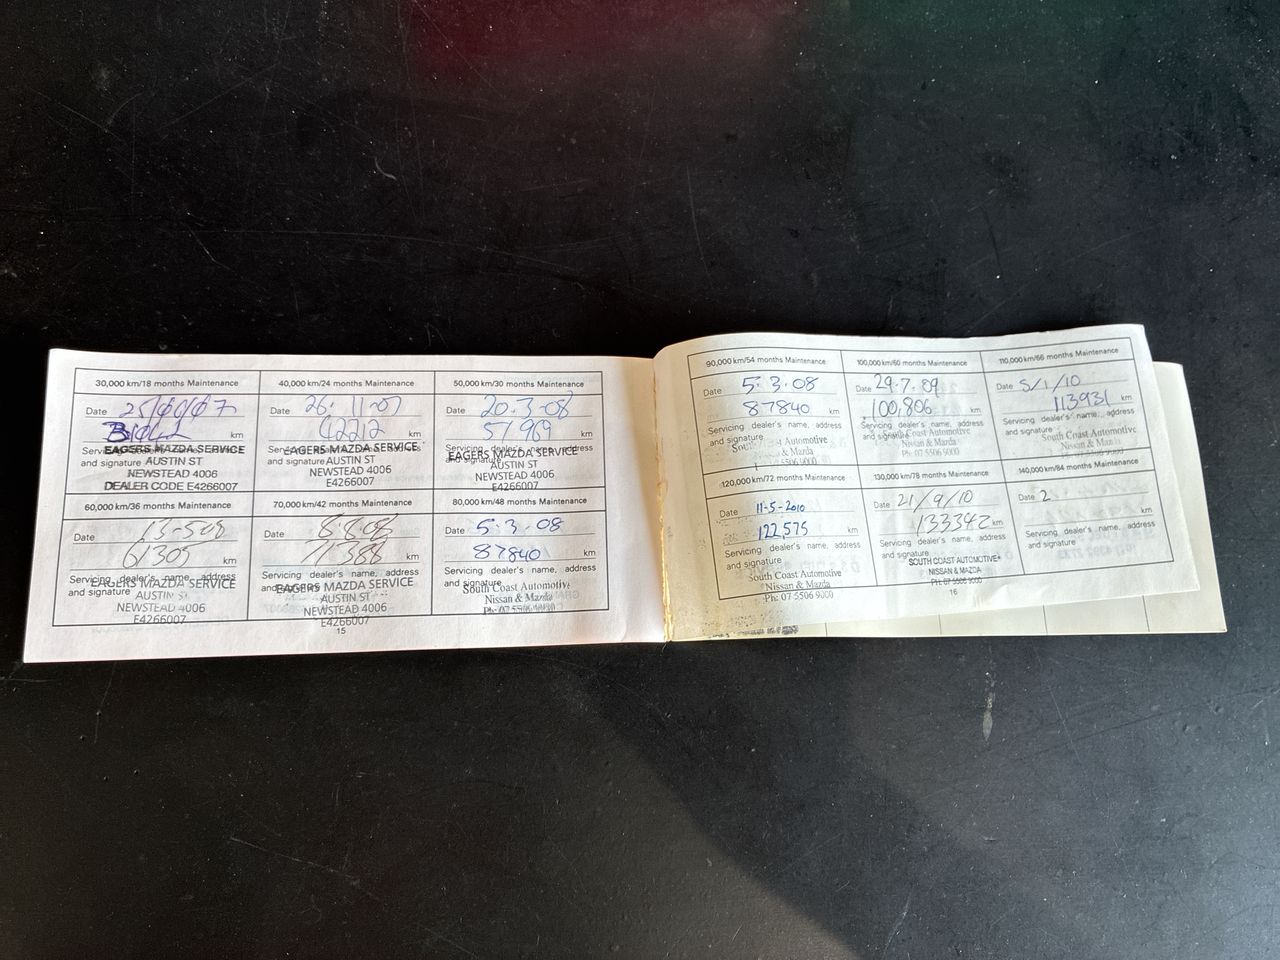 30,000 km/18 months Maintenance
Date
km
EAGERS MAZDA SERVICE
and signature AUSTIN ST
NEWSTEAD 4006
DEALER CODE E4266007
40,000 km/24 months Maintenance
Date 26.11.07
42212 km
EAGERS MAZDA SERVICE
and signature AUSTIN ST
NEWSTEAD 4006
E4266007
50,000 km/30 months Maintenance
Date 20.3.08
51969 km
EAGERS MAZDA SERVICE
AUSTIN ST
NEWSTEAD 4006
E4266007
60,000 km/36 months Maintenance
Date 13-5-08
61305 km
Servicing dealer's name, address
and signature
EAGERS MAZDA SERVICE
AUSTIN ST
NEWSTEAD 4006
E4266007
70,000 km/42 months Maintenance
Date 8.8.08
71388 km
Servicing dealer's name, address
EAGERS MAZDA SERVICE
AUSTIN ST
NEWSTEAD 4006
E4266007
80,000 km/48 months Maintenance
Date 5.3.08
87840 km
Servicing dealer's name, address
and signature
South Coast Automotive
Nissan & Mazda
Ph: 07 5506 9000
15
90,000 km/54 months Maintenance
Date 5.3.08
87840 km
Servicing dealer's name, address
and signature
Automotive
& Mazda
5506 9000
100,000 km/60 months Maintenance
Date 29.7.09
100,806 km
Servicing dealer's name, address
and signature
South Coast Automotive
Nissan & Mazda
Ph: 07 5506 9000
110,000 km/66 months Maintenance
Date 5/1/10
113931 km
Servicing dealer's name, address
and signature
South Coast Automotive
Nissan & Mazda
120,000 km/72 months Maintenance
Date 11-5-2010
122,575 km
Servicing dealer's name, address
and signature
South Coast Automotive
Nissan & Mazda
Ph: 07 5506 9000
130,000 km/78 months Maintenance
Date 21/9/10
133342 km
Servicing dealer's name, address
and signature
SOUTH COAST AUTOMOTIVE
NISSAN & MAZDA
PH: 07 5506 9000
140,000 km/84 months Maintenance
Date 2
km
Servicing dealer's name, address
and signature
16